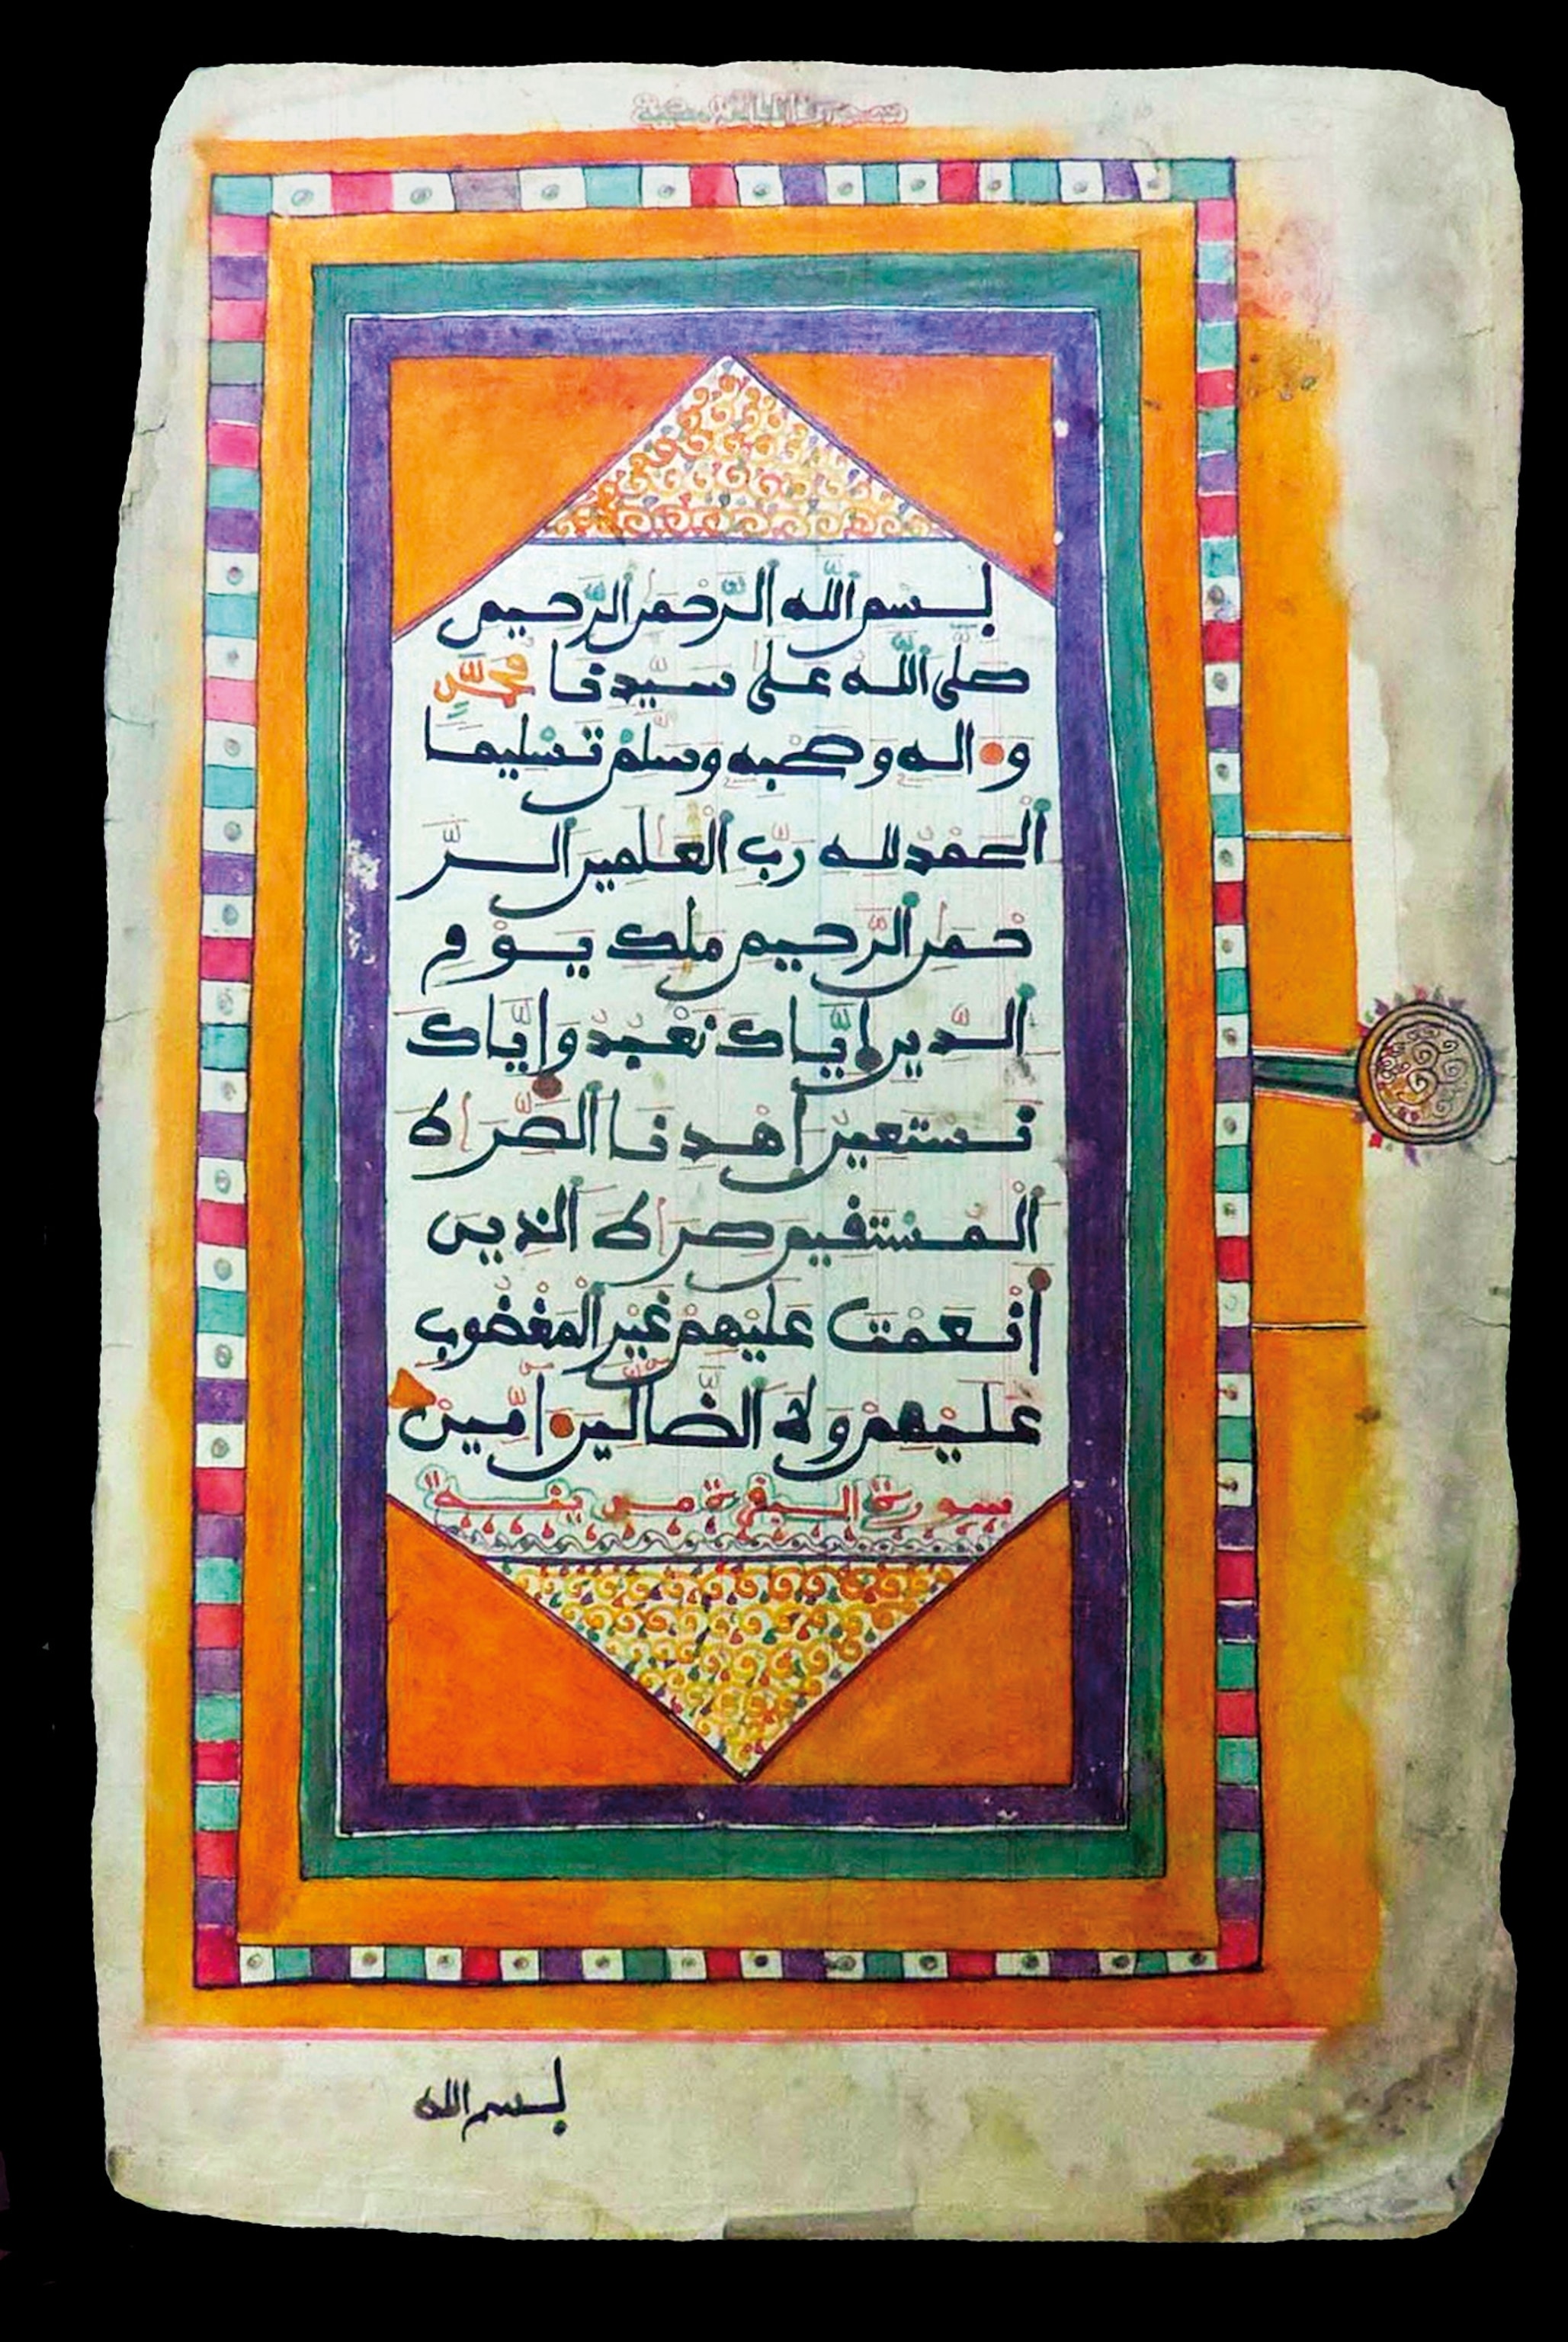 بسم الله الرحمن الرحيم
صلى الله على سيدنا محمد
و اله وصحبه وسلم تسليما
الحمد لله رب العلمين الر
حمن الرحيم ملك يوم
الدين اياك نعبد واياك
نستعين اهدنا الصراط
المستقيم صراط الذين
انعمت عليهم غير المغضوب
عليهم ولا الضالين امين
سورة البقرة مدينة
بسم الله